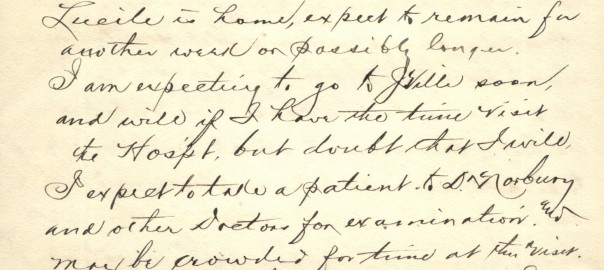 Lucile is home, expect to remain for
another week or possibly longer.
I am expecting to go to J'Ville soon,
and will if I have the time visit
the Hospt, but doubt that I will,
I expect to take a patient to Dr Norbury
and other Doctors for examination. and
may be crowded for time at this visit.